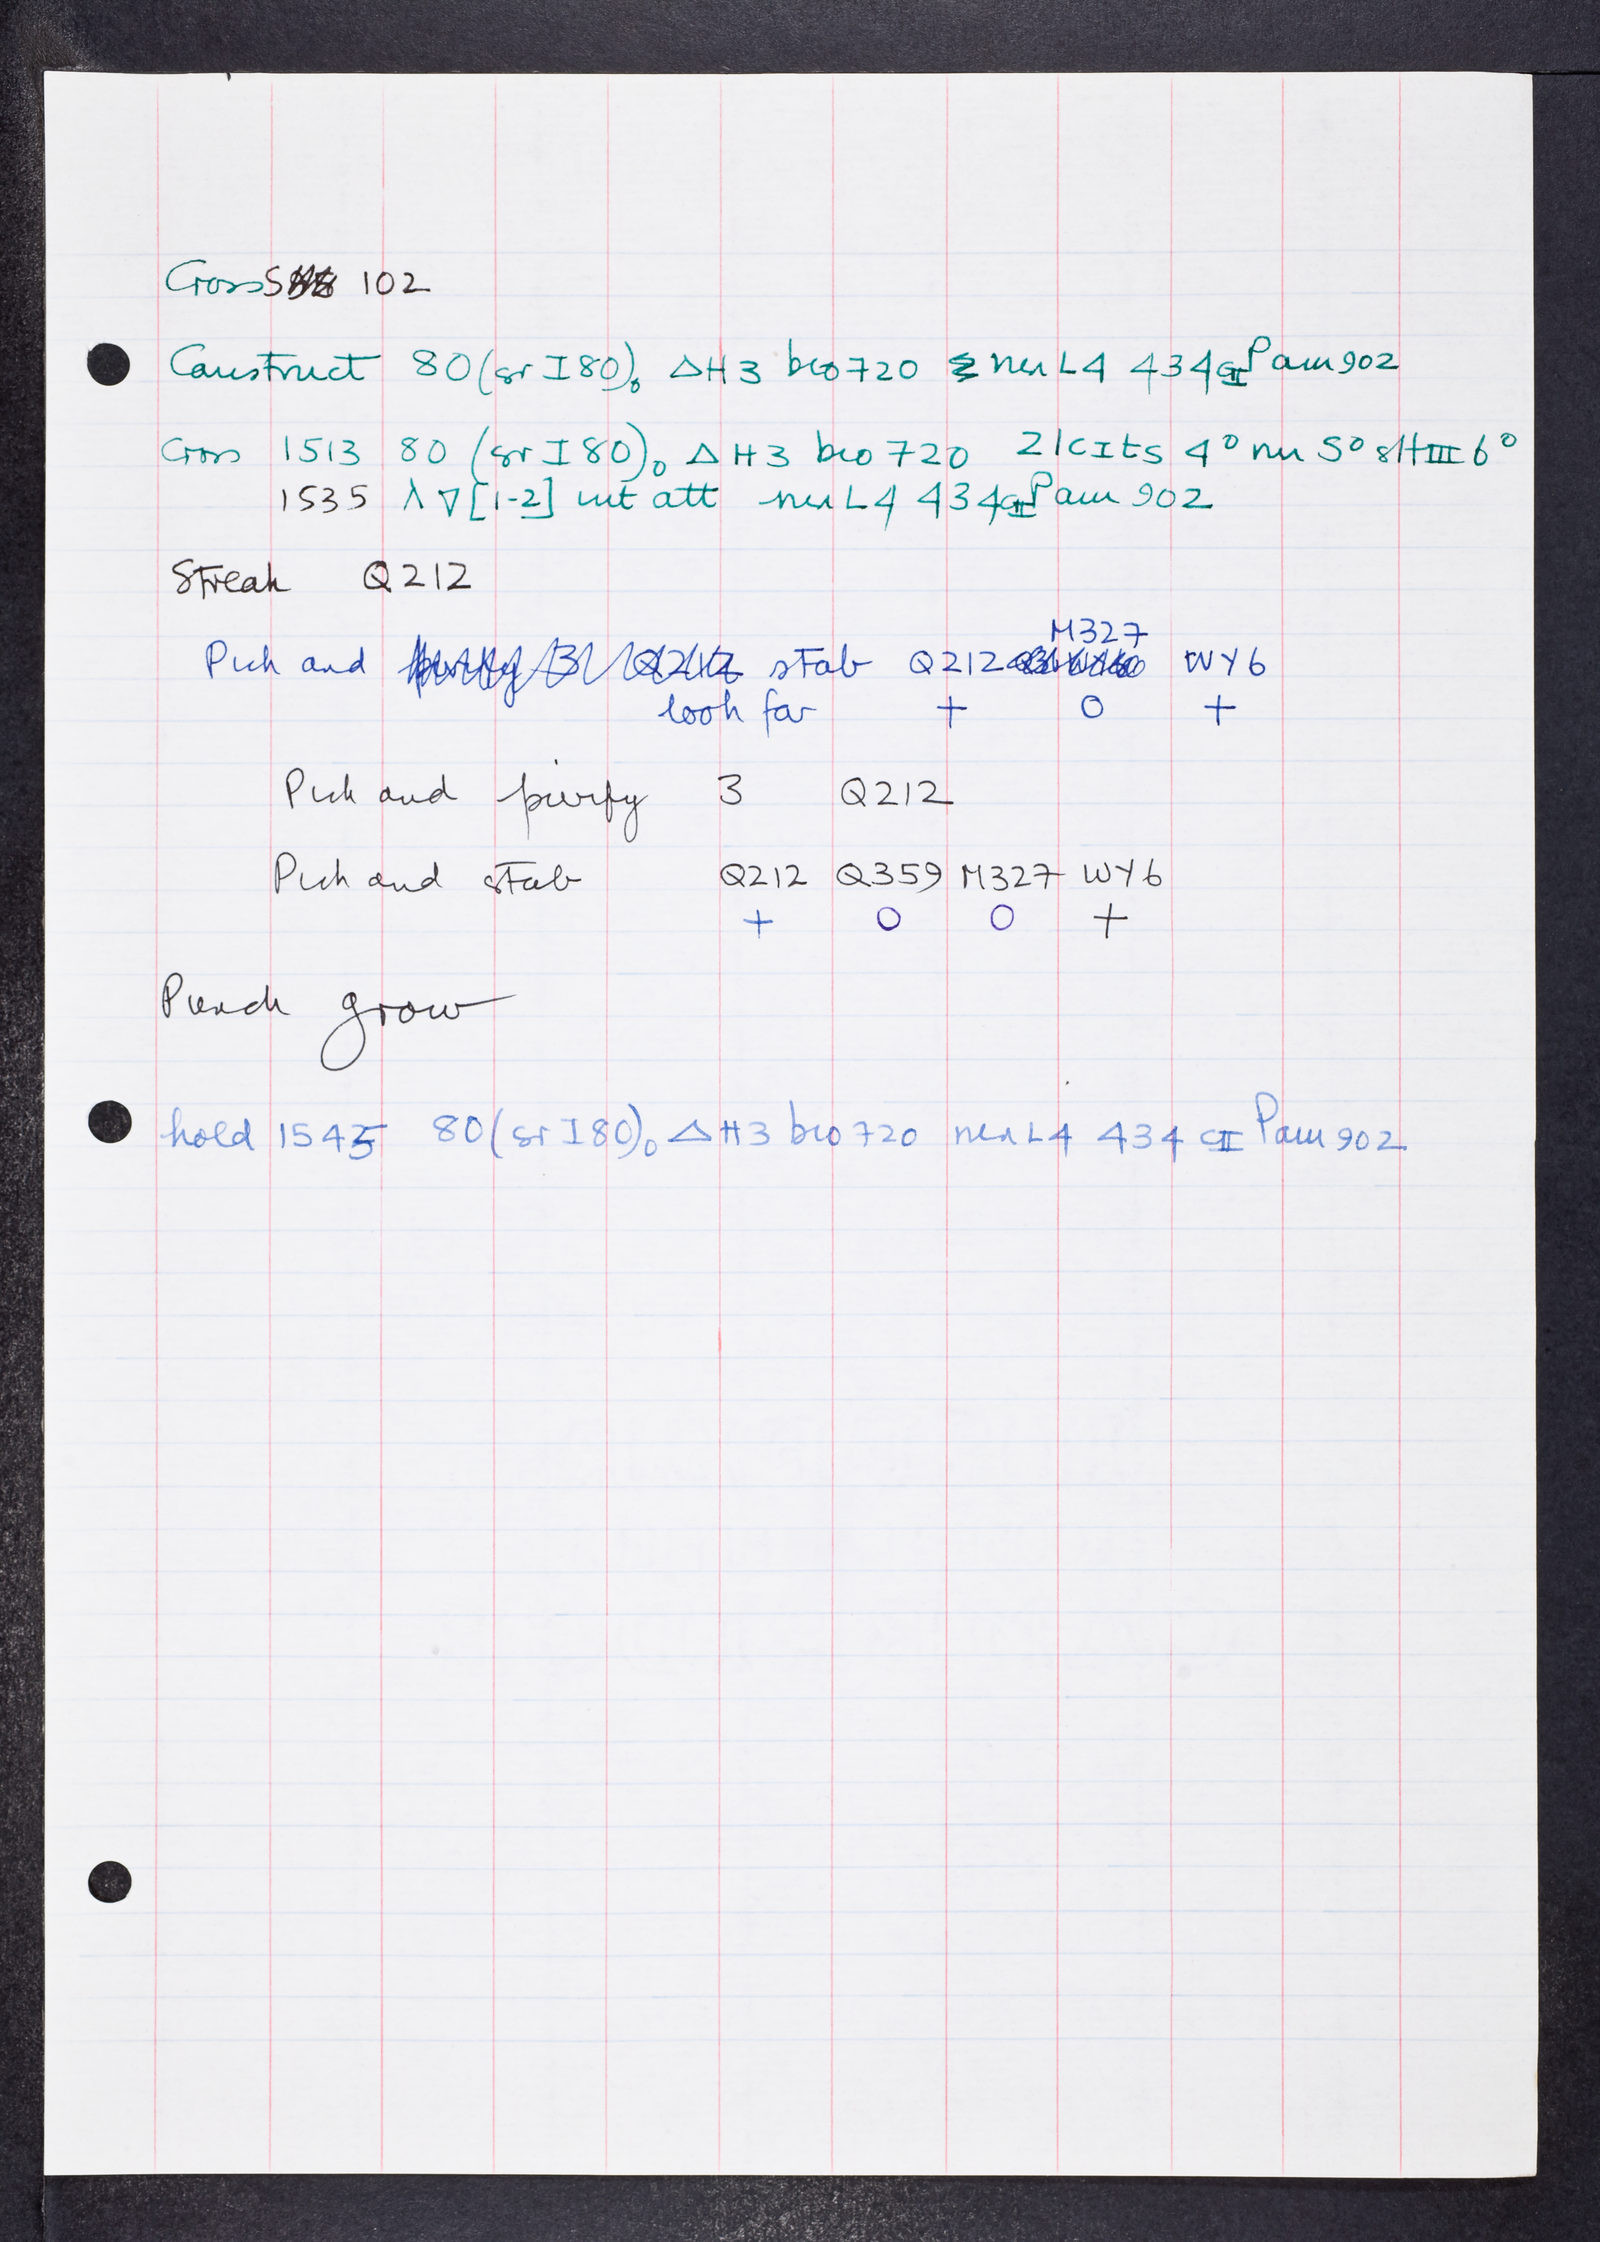 Cross S 102
Construct 80(sr I 80)₀ ΔH3 bio720 nin L4 434 cII Pam902
Cross 1513 80 (sr I 80)₀ ΔH3 bio720 21cIts 4° nin 5° sHIII 6°
1535 λ∇[1-2] int att nin L4 434 cII Pam 902
Streak Q212
M327
Pick and stab Q212 WY6
look for + 0 +
Pick and purify 3 Q212
Pick and stab Q212 Q359 M327 WY6
+ 0 0 +
grow
hold 1545 80(sr I 80)₀ ΔH3 bio720 nin L4 434 cII Pam902